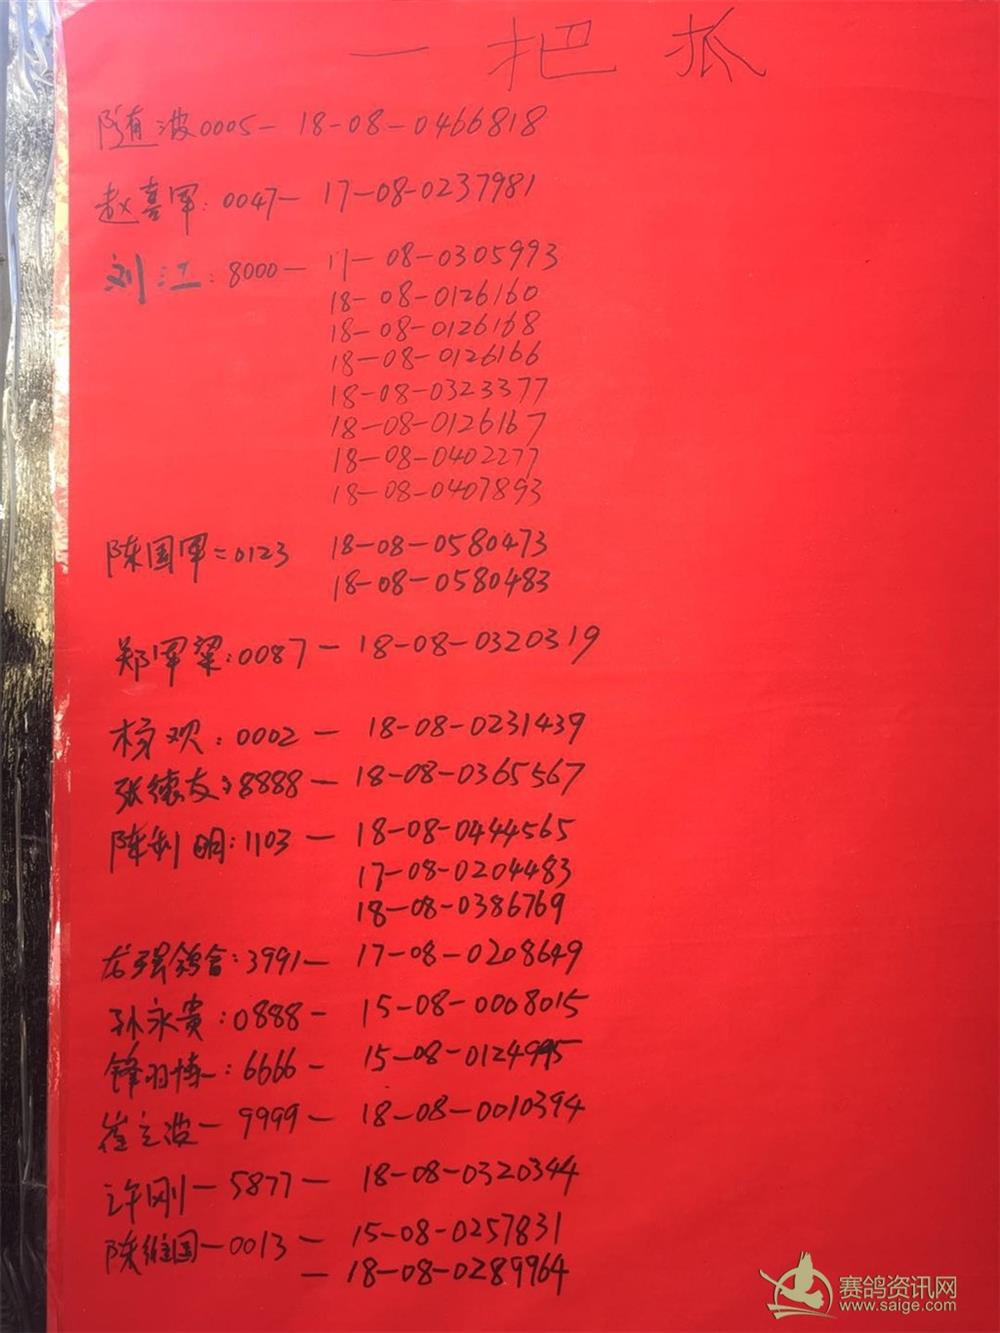 一把抓
隋有波0005-18-08-0466818
赵喜军:0047-17-08-0237981
刘江:8000-17-08-0305993
18-08-0126160
18-08-0126168
18-08-0126166
18-08-0323377
18-08-0126167
18-08-0402277
18-08-0407893
陈国军=0123 18-08-0580473
18-08-0580483
郑军梁:0087-18-08-0320319
杨欢:0002-18-08-0231439
张德友:8888-18-08-0365567
陈利明:1103-18-08-0444565
17-08-0204483
18-08-0386769
龙强鸽舍:3991-17-08-0208649
孙永贵:0888-15-08-0008015
锋羽博:6666-15-08-
崔立波-9999-18-08-0010394
许刚-5877-18-08-0320344
陈维国-0013-15-08-0257831
-18-08-0289964
赛鸽资讯网
www.saige.com